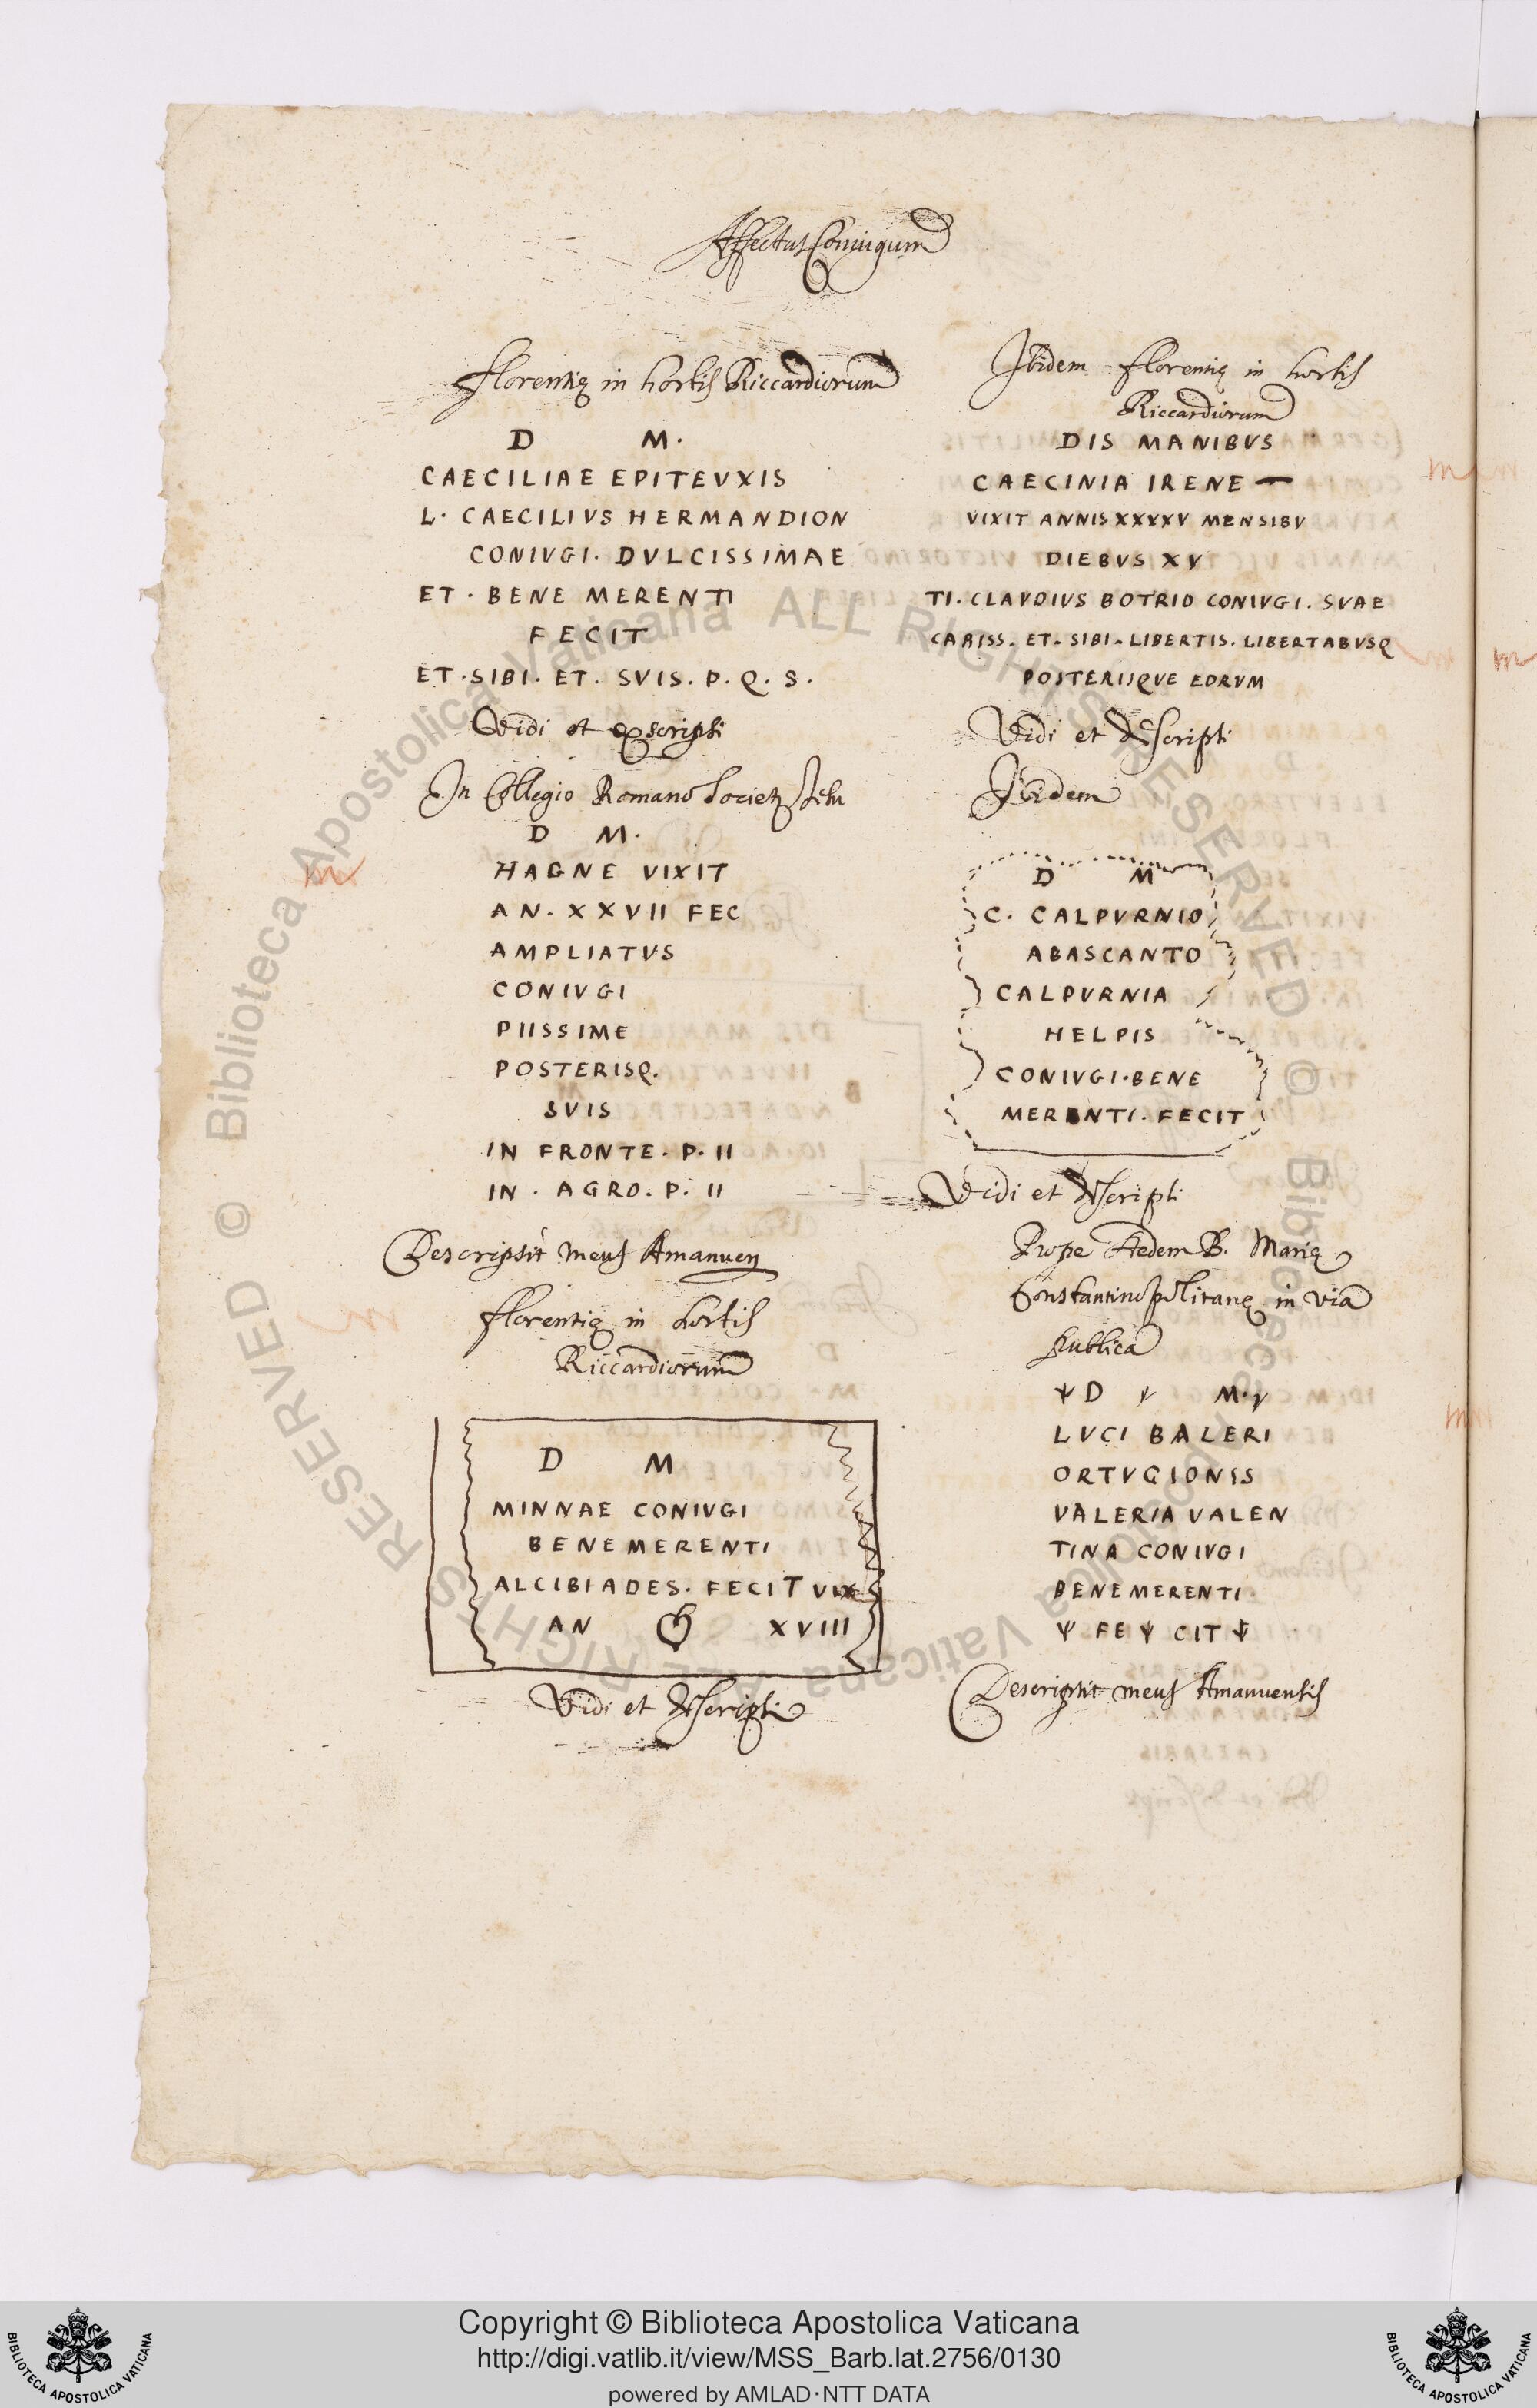 Affectus Coniugum
Florentię in hortis Riccardiorum
D M.
CAECILIAE EPITEVXIS
L. CAECILIVS HERMANDION
CONIVGI. DVLCISSIMAE
ET. BENE MERENTI
FECIT
ET. SIBI. ET. SVIS. P. Q. S.
Vidi et exscripsi
In Collegio Romano Societ. Iesu
D M.
HAGNE VIXIT
AN. XXVII FEC
AMPLIATVS
CONIVGI
PIISSIME
POSTERISQ.
SVIS
IN FRONTE. P. II
IN. AGRO. P. II
Descripsit meus Amanuen
Florentię in hortis
Riccardiorum
D M
MINNAE CONIVGI
BENEMERENTI
ALCIBIADES. FECIT VIX
AN XVIII
Vidi et descripsi
Ibidem Florentię in hortis
Riccardiorum
DIS MANIBVS
CAECINIA IRENE
VIXIT ANNIS XXXXV MENSIBV
DIEBVS XV
TI. CLAVDIVS BOTRIO CONIVGI. SVAE
CARISS. ET. SIBI. LIBERTIS. LIBERTABVSQ
POSTERIIQVE EORVM
Vidi et descripsi
Ibidem
D M
C. CALPVRNIO
ABASCANTO
CALPVRNIA
HELPIS
CONIVGI. BENE
MERENTI. FECIT
Vidi et descripsi
Prope Aedem B. Marię
Constantinopolitanę in via
publica
D M.
LVCI BALERI
ORTVGIONIS
VALERIA VALEN
TINA CONIVGI
BENEMERENTI.
FE CIT
Descripsit meus Amanuensis
Copyright © Biblioteca Apostolica Vaticana
http://digi.vatlib.it/view/MSS_Barb.lat.2756/0130
powered by AMLAD·NTT DATA